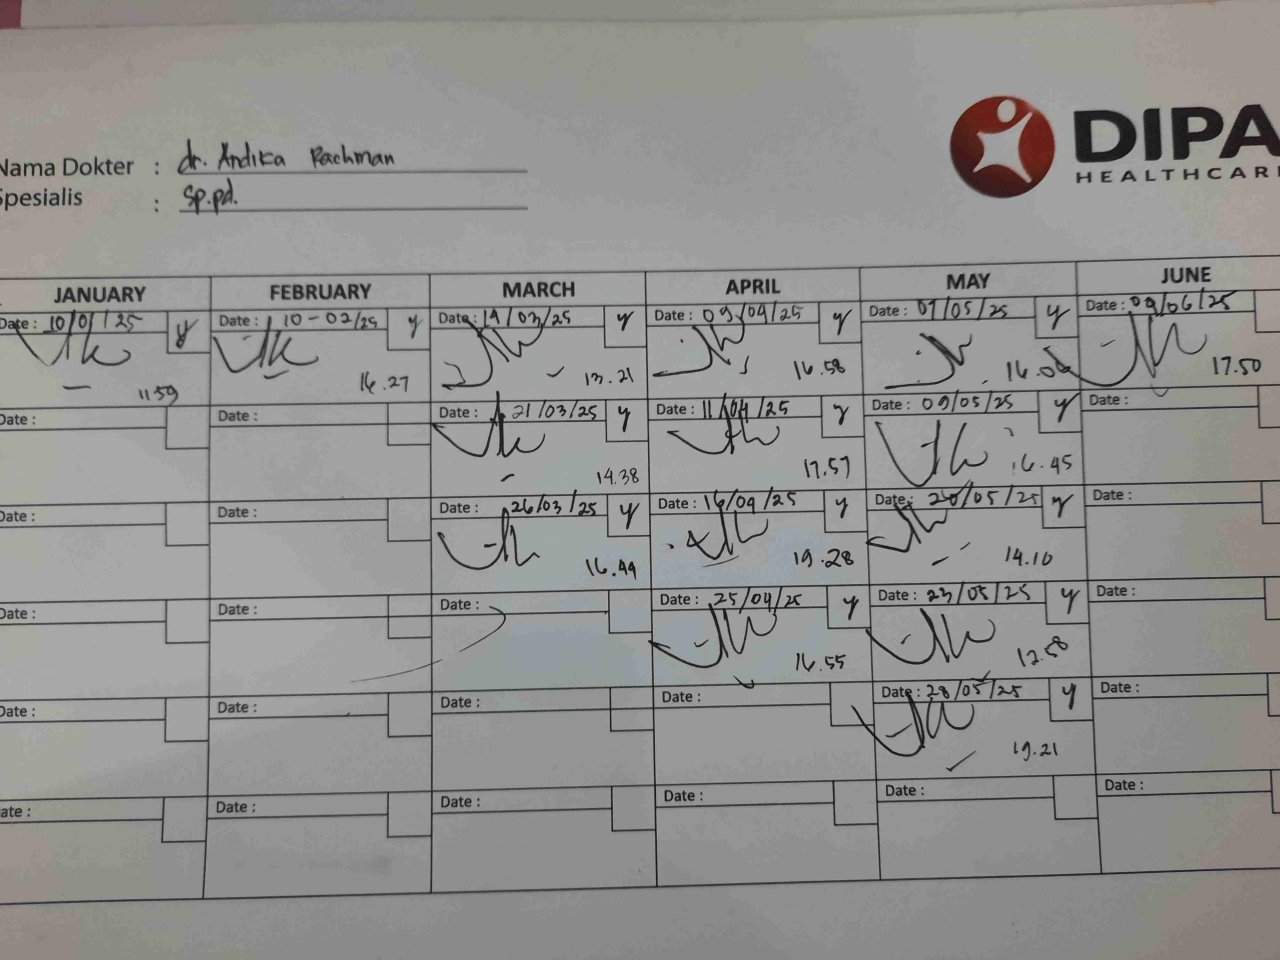 Nama Dokter : dr. Andika Rachman
Spesialis : Sp.pd.
DIPA
HEALTHCAR
JANUARY FEBRUARY MARCH APRIL MAY JUNE
Date : 10/01/25 y Date : 10-02/25 y Date : 19/03/25 y Date : 09/04/25 y Date : 07/05/25 y Date : 09/06/25
11.59 16.27 13.21 16.58 16.06 17.50
Date : Date : Date : 21/03/25 y Date : 11/04/25 y Date : 09/05/25 y Date :
14.38 17.57 16.45
Date : Date : Date : 26/03/25 y Date : 16/04/25 y Date : 20/05/25 y Date :
16.44 19.28 14.10
Date : Date : Date : Date : 25/04/25 y Date : 23/05/25 y Date :
16.55 12.58
Date : Date : Date : Date : Date : 28/05/25 y Date :
19.21
Date : Date : Date : Date : Date : Date :